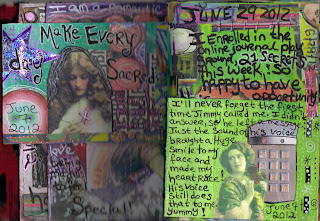 I am a Romantic
Make Every
day
Sacred
June
7
2012
JUNE 29 2012
I Enrolled in the
online journal play
ground 21 SECRETS
this week! So
happy to have
opportunity
I'll never forget the first
time Jimmy called me. I didn't
answer, so he left a message.
Just the Sound of his voice
brought a Huge
Smile to my
face and
made my
heart Race!
His voice
Still does
that to me.
Yummy!
June 7
2012